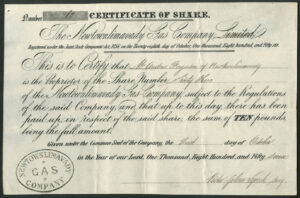 Number CERTIFICATE OF SHARE.
The Newtownlimavady Gas Company, Limited,
Registered under the Joint Stock Companies Act, 1856 on the Twenty-eighth day of October, One Thousand, Eight Hundred, and Fifty six.
This is to Certify that of Newtownlimavady
is the Proprietor of the Share Number
of the Newtownlimavady Gas Company, subject to the Regulations
of the said Company, and that up to this day there has been
paid up, in respect of the said share, the sum of TEN pounds,
being the full amount.
Given under the Common Seal of the Company, the day of
in the Year of our Lord, One Thousand, Eight Hundred, and Fifty
NEWTOWNLIMAVADY
GAS
COMPANY